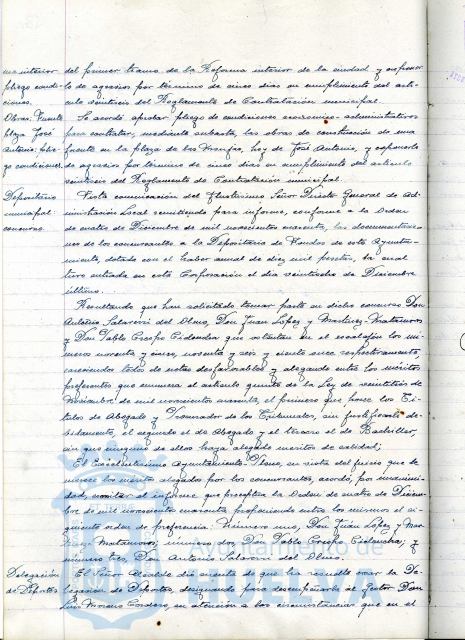 ma interior
pliego condi-
ciones.
Obras. Fuente
plaza José
Antonio; plie-
go condiciones.
Depositario
municipal
concurso.
Delegación
de Deportes
del primer tramo de la Reforma interior de la ciudad y exponer-
lo de agravios por término de cinco días en cumplimiento del artí-
culo veintiseis del Reglamento de Contratación municipal.
Se acordó aprobar pliego de condiciones económico-administrativas
para contratar, mediante subasta, las obras de construcción de una
fuente en la plaza de las Monjas, hoy de José Antonio, y exponerlo
de agravios por término de cinco días en cumplimiento del artículo
veintiseis del Reglamento de Contratación municipal.
Vista comunicación del Ilustrísimo Señor Director General de Ad-
ministración Local remitiendo para informe, conforme a la Orden
de cuatro de Diciembre de mil novecientos cuarenta, las documentacio-
nes de los concursantes a la Depositaría de Fondos de este Ayunta-
miento, dotada con el haber anual de diez mil pesetas, la cual
tuvo entrada en esta Corporación el día veintiocho de Diciembre
último.
Resultando que han solicitado tomar parte en dicho concurso Don
Antonio Salaverri del Olmo, Don Juan López y Martínez Matamoros
y Don Pablo Crespo que ostentan en el escalafón los nú-
meros noventa y cinco, noventa y seis y ciento once respectivamente,
careciendo todos de notas desfavorables y alegando entre los méritos
preferentes que enumera el artículo quinto de la Ley de veintitrés de
Noviembre de mil novecientos cuarenta, el primero que posee los Tí-
tulos de Abogado y Procurador de los Tribunales, sin justificarlo de-
bidamente, el segundo el de Abogado y el tercero el de Bachiller,
sin que ninguno de ellos haya alegado méritos de calidad;
El Excelentísimo Ayuntamiento Pleno, en vista del juicio que le
merece los méritos alegados por los concursantes, acordó, por unanimi-
dad, emitir el informe que preceptúa la Orden de cuatro de Diciem-
bre de mil novecientos cuarenta prefiriendo entre los mismos el si-
guiente orden de preferencia: Número uno, Don Juan López y Mar-
tínez Matamoros; número dos, Don Pablo Crespo; y
número tres, Don Antonio Salaverri del Olmo.
El Señor Alcalde dió cuenta de que ha resuelto crear la De-
legación de Deportes, designando para desempeñarla al Gestor Don
Luis Moreno Cordero, en atención a las circunstancias que en él
Ayuntamiento de
HUELVA